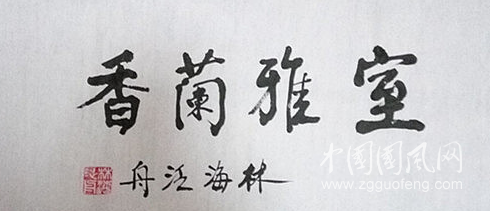 室雅蘭香
林海泛舟
中国国风网
www.zgguofeng.com